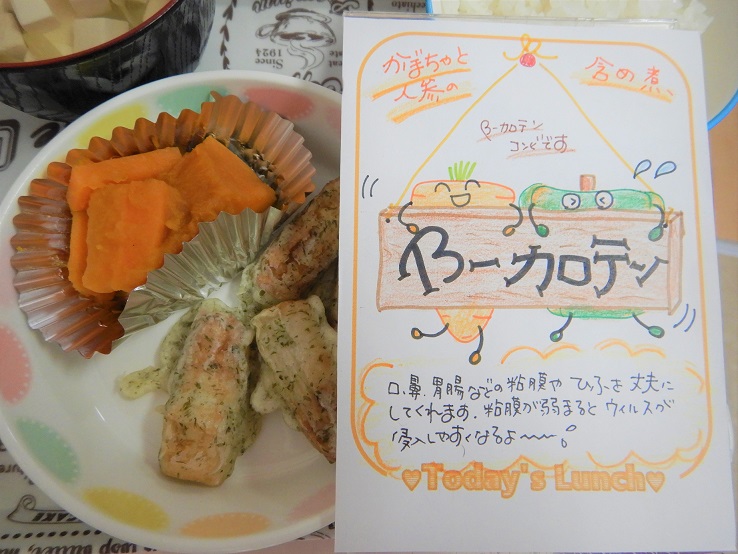 かぼちゃと
人参の
含め煮
β-カロテン
コンビです
β-カロテン
口、鼻、胃腸などの粘膜や ひふを丈夫に
してくれます。粘膜が弱まると ウィルスが
侵入しやすくなるよ〜〜。
♥Today's Lunch♥
Since
1924